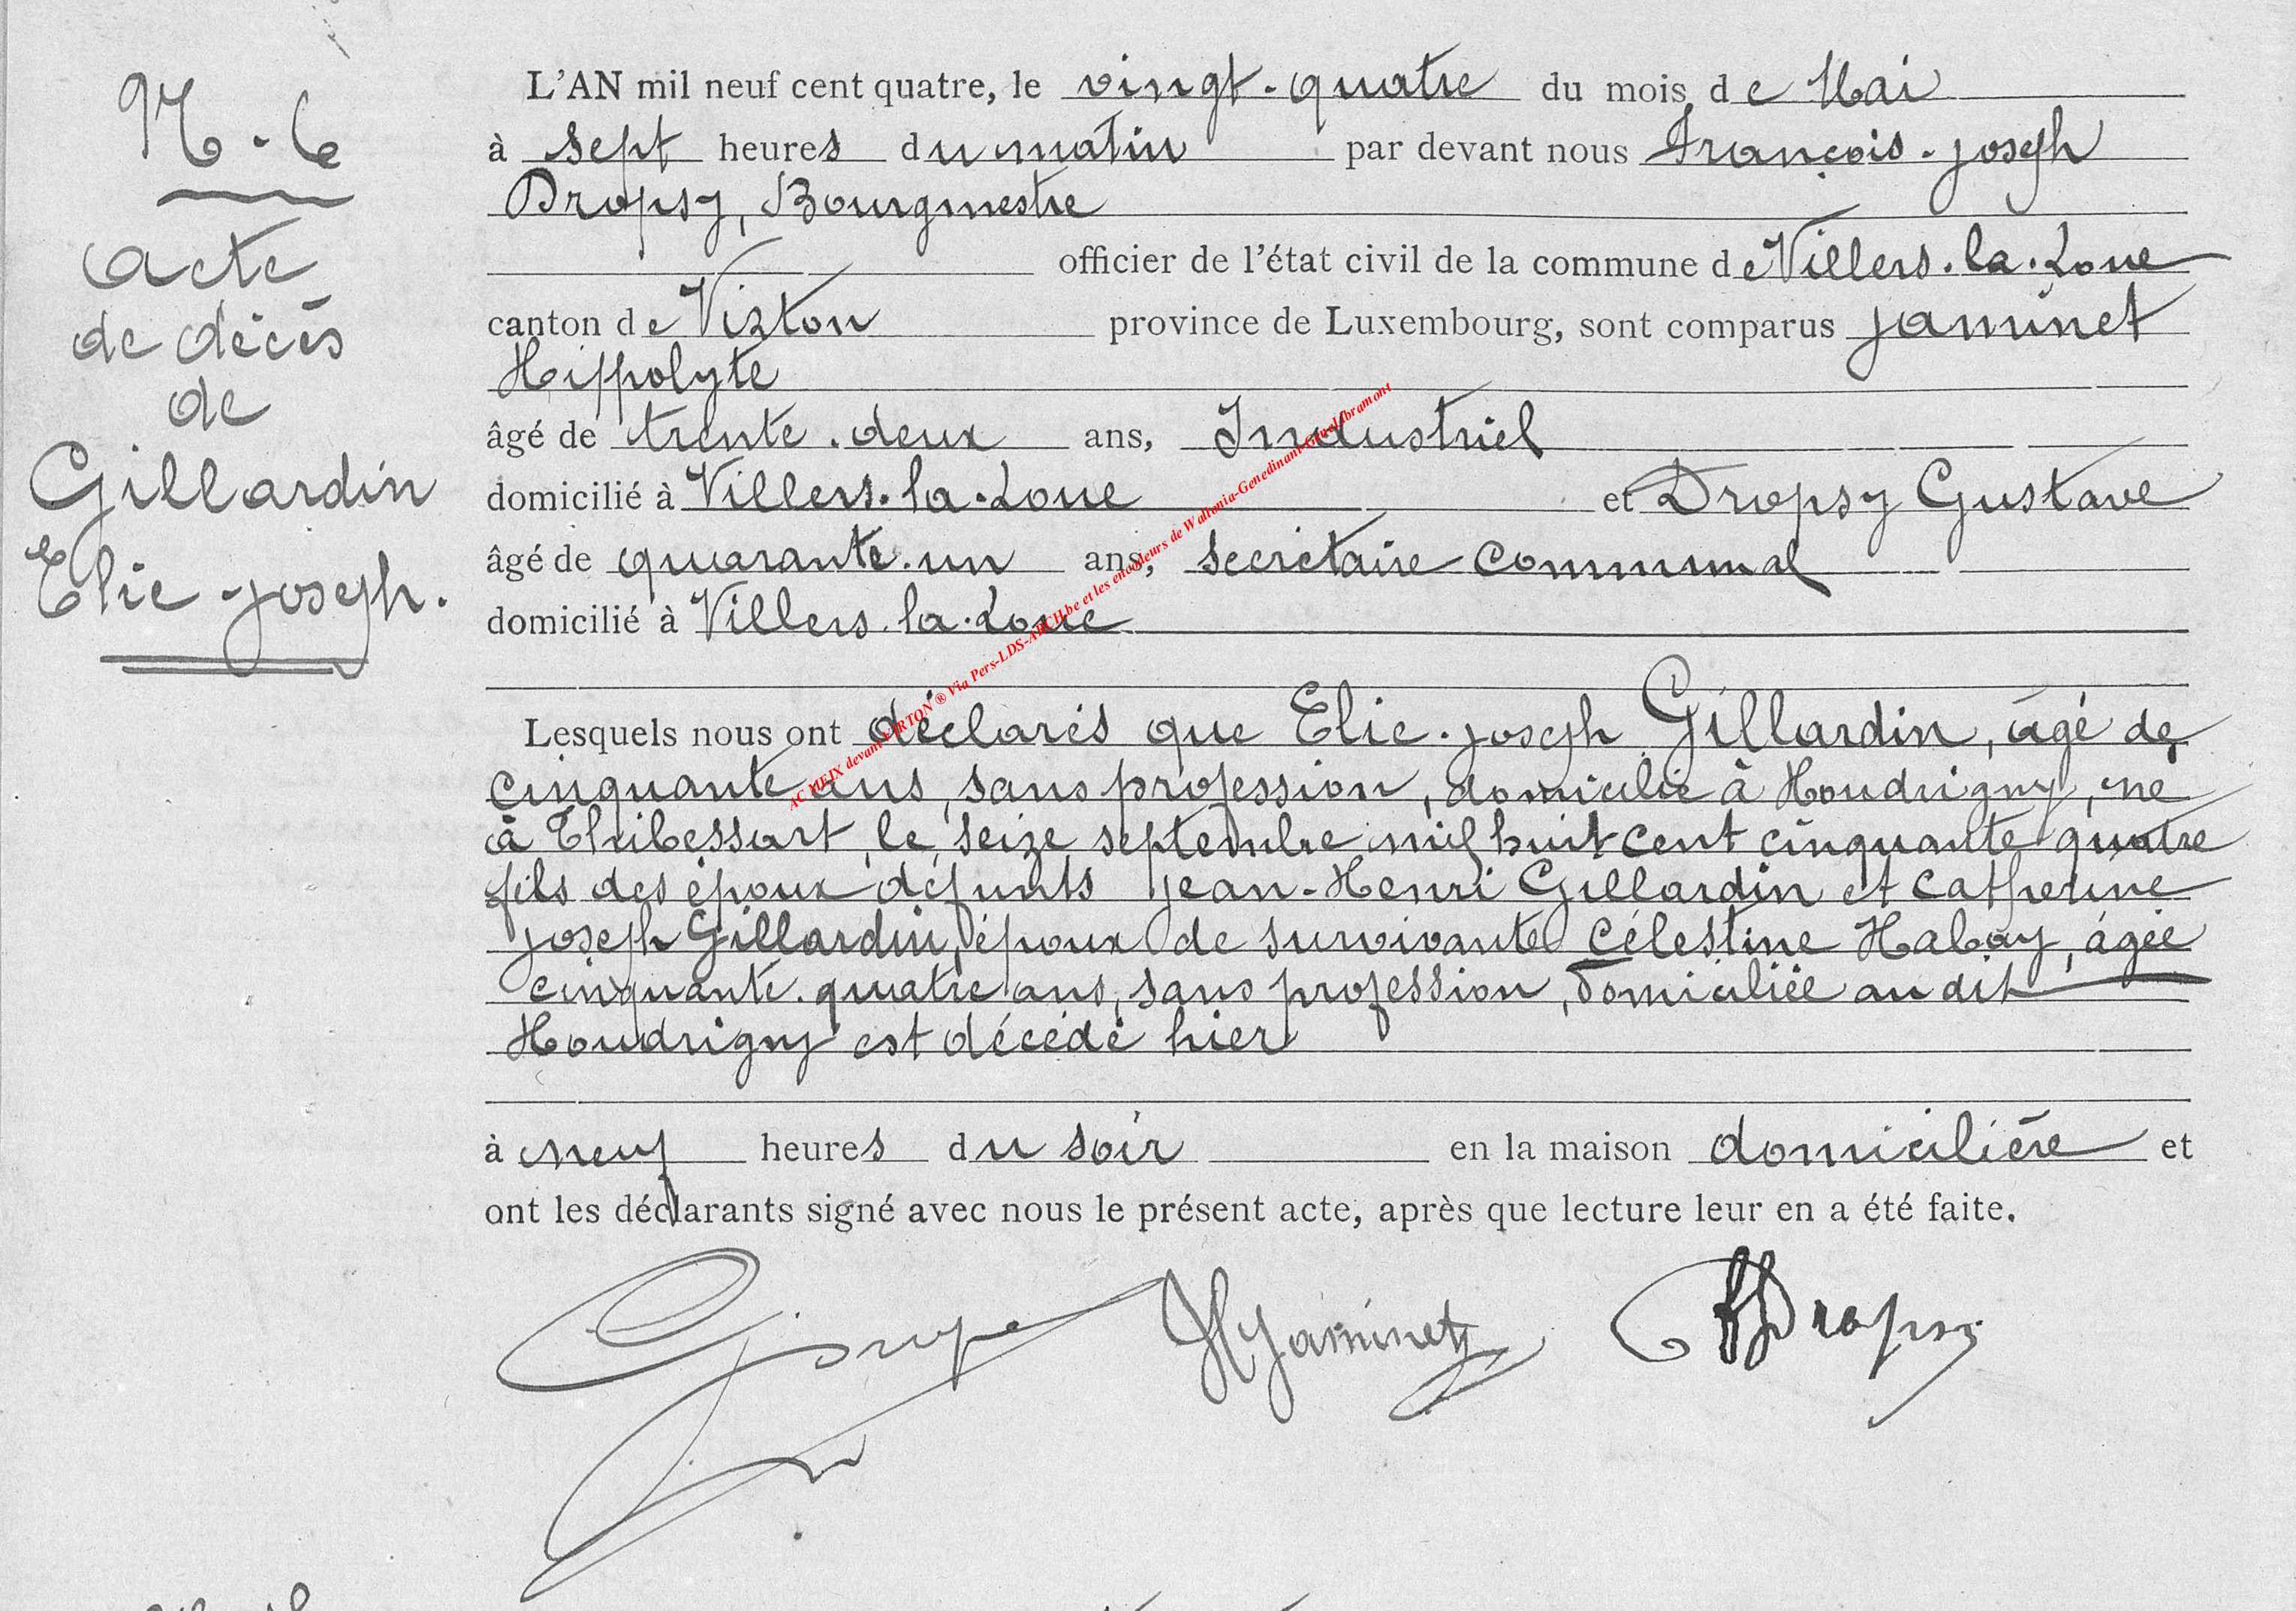 N. 6
acte
de décès
de
Gillardin
Elie-joseph.
L'AN mil neuf cent quatre, le vingt-quatre du mois de Mai
à sept heures du matin par devant nous François-joseph
Dropsy, Bourgmestre
officier de l'état civil de la commune de Villers-la-Loue
canton de Virton province de Luxembourg, sont comparus jaminet
Hippolyte
âgé de trente-deux ans, Industriel
domicilié à Villers-la-Loue et Dropsy Gustave
âgé de quarante-un ans, secrétaire communal
domicilié à Villers-la-Loue
Lesquels nous ont déclarés que Elie-joseph Gillardin, âgé de
cinquante ans, sans profession, domicilié à Houdrigny, né
à Thibessart, le seize septembre mil huit cent cinquante quatre
fils des époux défunts jean-Henri Gillardin et Catherine
joseph Gillardin, époux de survivante Célestine Habay, âgée
cinquante-quatre ans, sans profession, domiciliée au dit
Houdrigny est décédé hier
à neuf heures du soir en la maison domicilière et
ont les déclarants signé avec nous le présent acte, après que lecture leur en a été faite.
HJaminet Dropsy
AC MEIX devant VIRTON ® Via Pers-LDS-ARCH.be et les encodeurs de Wallonia-Genedinant-GeneLibramont